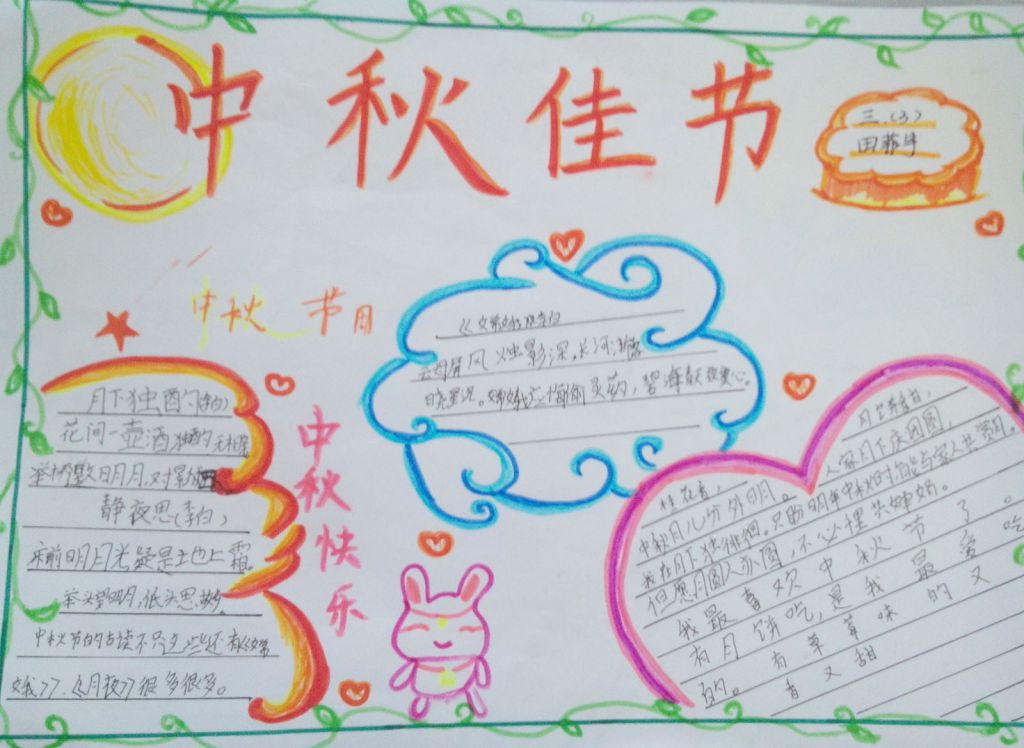 中秋佳节
三.(3)
田
中秋 节月
云母屏风烛影深,长河渐
晓星沉。嫦娥应悔偷灵药,碧海
心。
月下独酌(李白)
花间一壶酒独酌无相
举杯邀明月,对影
静夜思(李白)
床前明月光,疑是土也上霜。
举头望明月,低头思
中秋节的古读不只
娥》》.《《月夜》》很多很多。
中秋快乐
月
人在月下庆团圆,
桂花香,
中秋月儿分外明。
我在月下独徘徊。只盼明年中秋时,能与家人共赏月。
但愿月圆人亦圆,不必埋
我最喜欢中秋节了。
有月饼吃,是我最爱吃
的。有草莓味的又
香又甜